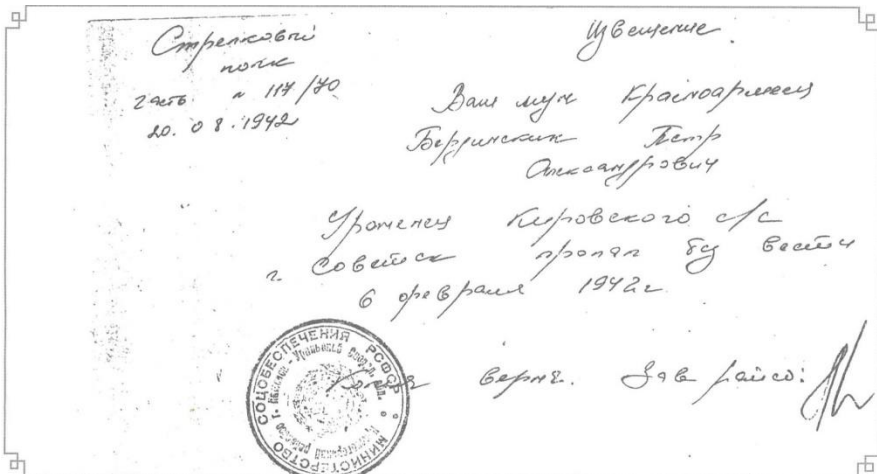 Стрелковый
полк
часть № 117/70
20.08.1942
Извещение.
Ваш муж Красноармеец
Бердинских Петр
Александрович
Уроженец Кировского с/с
г. Советск пропал без вести
6 февраля 1942г.
Копия верна. Зав райсо:
МИНИСТЕРСТВО СОЦОБЕСПЕЧЕНИЯ РСФСР